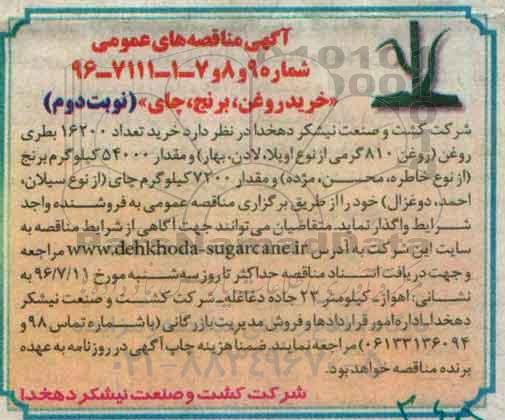 آگهی مناقصه‌های عمومی
شماره ۹ و ۸ و ۷-۱-۷۱۱۱-۹۶
«خرید روغن، برنج، چای» (نوبت دوم)
شرکت کشت و صنعت نیشکر دهخدا در نظر دارد خرید تعداد ۱۶۲۰۰ بطری
روغن (روغن ۸۱۰ گرمی از نوع اویلا، لادن، بهار) و مقدار ۵۴۰۰۰ کیلوگرم برنج
(از نوع خاطره، محسن، مژده) و مقدار ۷۲۰۰ کیلوگرم چای (از نوع سیلان،
احمد، دوغزال) خود را از طریق برگزاری مناقصه عمومی به فروشنده واجد
شرایط واگذار نماید. متقاضیان می‌توانند جهت آگاهی از شرایط مناقصه به
سایت این شرکت به آدرس www.dehkhoda-sugarcane.ir مراجعه
و جهت دریافت اسناد مناقصه حداکثر تا روز سه‌شنبه مورخ ۹۶/۷/۱۱ به
نشانی: اهواز- کیلومتر ۲۳ جاده دغاغله- شرکت کشت و صنعت نیشکر
دهخدا- اداره امور قراردادها و فروش مدیریت بازرگانی (با شماره تماس ۹۸ و
۰۶۱۳۳۱۳۶۰۹۴) مراجعه نمایند. ضمنا هزینه چاپ آگهی در روزنامه به عهده
برنده مناقصه خواهد بود.
شرکت کشت و صنعت نیشکر دهخدا